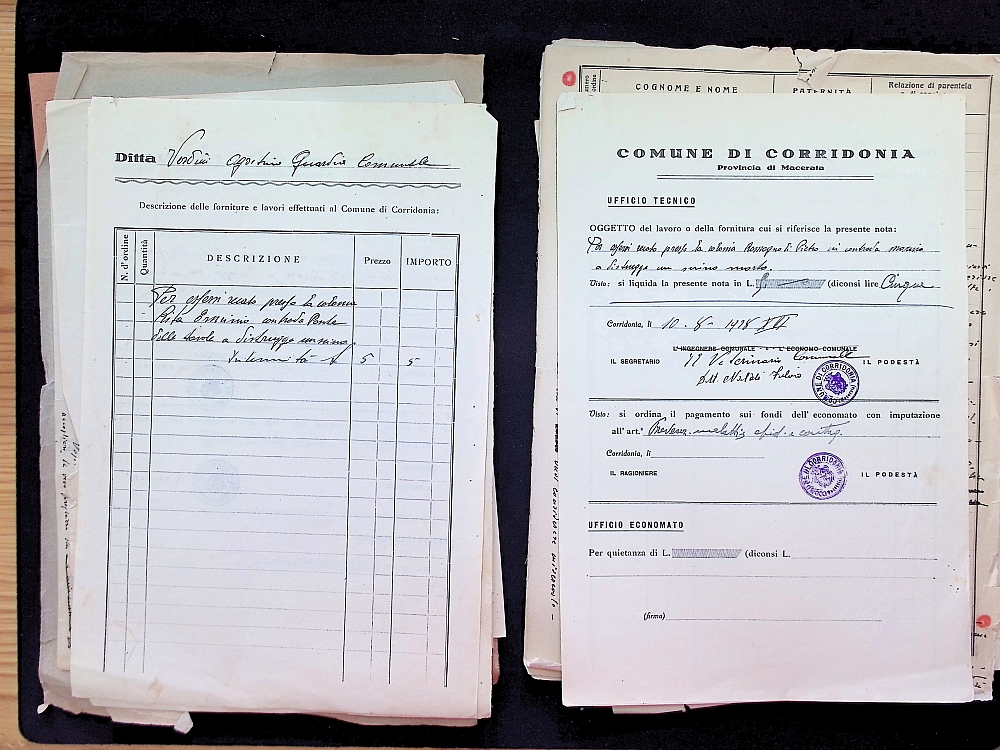 Ditta Verdini Agostino Guardia Comunale
Descrizione delle forniture e lavori effettuati al Comune di Corridonia:
N. d'ordine
Quantità
DESCRIZIONE
Prezzo
IMPORTO
Per essersi recato presso la colonia
Rita Erminio contrada Ponte
delle tavole a distruggere un suino
Indennità L 5 5
COGNOME E NOME
PATERNITÀ
Relazione di parentela
COMUNE DI CORRIDONIA
Provincia di Macerata
UFFICIO TECNICO
OGGETTO del lavoro o della fornitura cui si riferisce la presente nota:
Per essersi recato presso la colonia Romagnoli Pietro in contrada
a distruggere un suino morto.
Visto: si liquida la presente nota in L. 5 (diconsi lire Cinque
Corridonia, lì 10-8-1938 XVI
L'INGEGNERE COMUNALE - L'ECONOMO COMUNALE
IL SEGRETARIO Il Veterinario Comunale IL PODESTÀ
Dtt. Natali Silvio
Visto: si ordina il pagamento sui fondi dell'economato con imputazione
all'art.° malattie epid. e contag.
Corridonia, lì
IL RAGIONIERE IL PODESTÀ
UFFICIO ECONOMATO
Per quietanza di L. (diconsi L.
(firma)